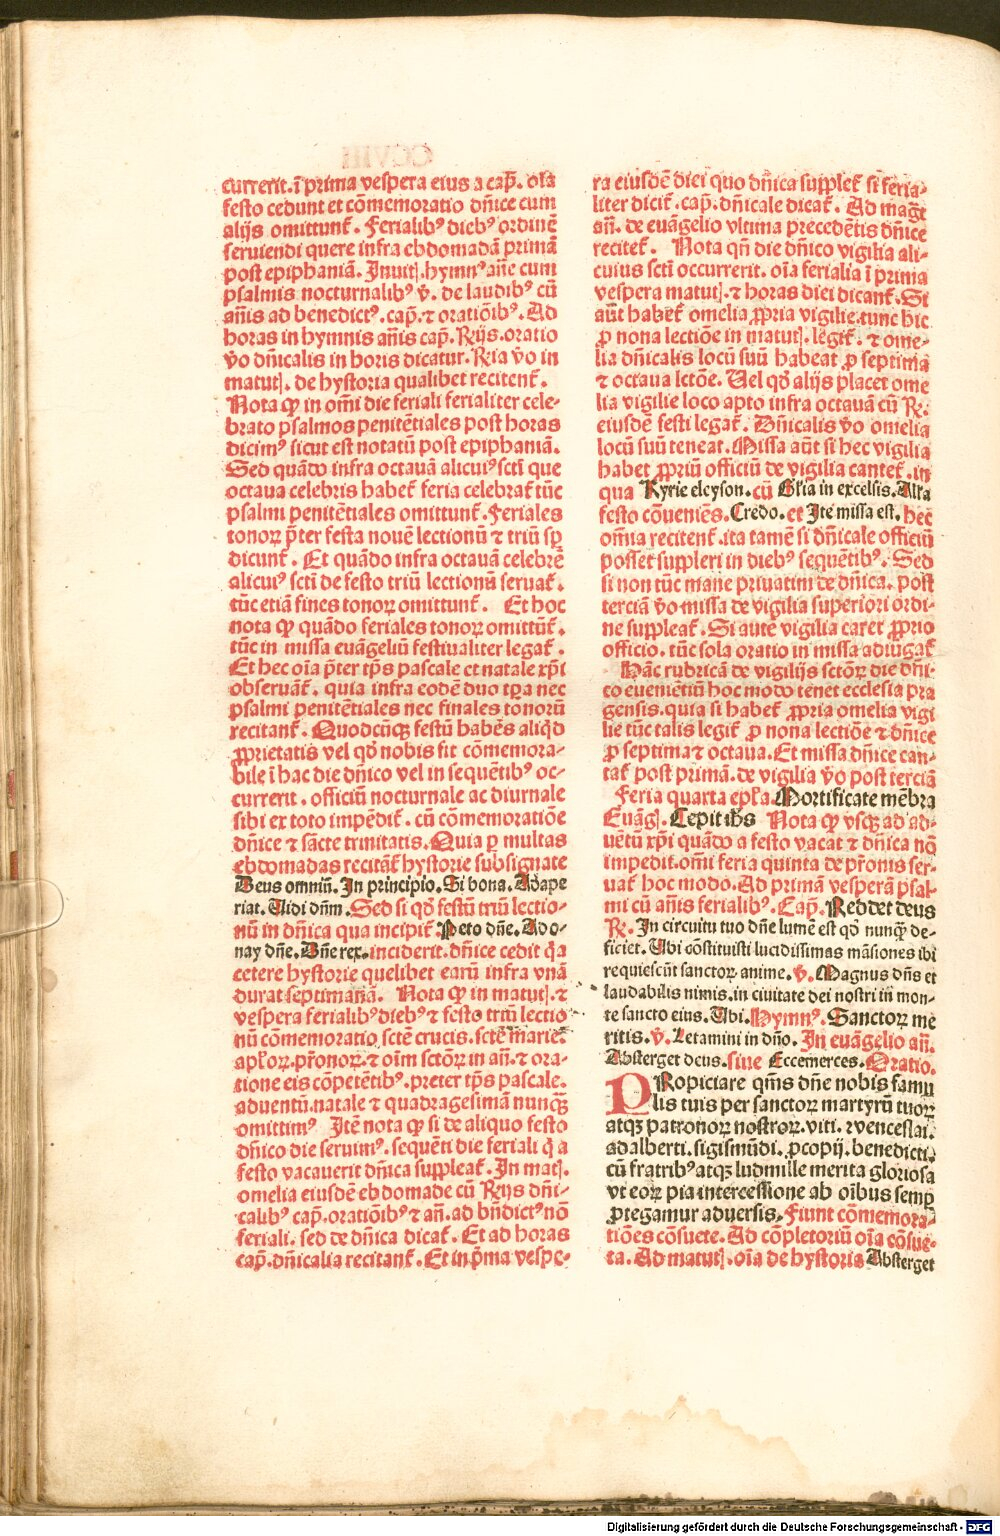 currerit. ī prima vespera eius a cap̄. oīa
festo cedunt et cōmemoratio dn̄ice cum
alijs omittunt᷑. Ferialibꝰ diebꝰ ordinē
seruiendi quere infra ebdomadā primā
post epiphaniā. Inuit]. hymnꝰ an̄e cum
psalmis nocturnalibꝰ v̄. de laudibꝰ cū
an̄is ad benedictꝰ. cap̄. ⁊ orationibꝰ. Ad
horas in hymnis an̄is cap̄. R̄ijs. oratio
v̄o dn̄icalis in horis dicatur. R̄ia v̄o in
matut]. de hystoria qualibet recitent᷑.
Nota ꝙ in om̄i die feriali ferialiter cele-
brato psalmos penitētiales post horas
dicimꝰ sicut est notatū post epiphaniā.
Sed quādo infra octauā alicuiꝰ sc̄ti que
octaua celebris habet᷑ feria celebrat᷑ tūc
psalmi penitētiales omittunt᷑. Feriales
tonoꝝ p̄ter festa nouē lectionū ⁊ triū sp̄
dicunt᷑. Et quādo infra octauā celebrē
alicuiꝰ sc̄ti de festo triū lectionū seruat᷑.
tūc etiā fines tonoꝝ omittunt᷑. Et hoc
nota ꝙ quādo feriales tonoꝝ omittūt᷑.
tūc in missa euāgeliū festiualiter legat᷑.
Et hec oīa p̄ter tp̄s pascale et natale xp̄i
obseruāt᷑. quia infra eodē duo tp̄a nec
psalmi penitētiales nec finales tonorū
recitant᷑. Quodcūqꝫ festū habēs aliqd̄
ꝓprietatis vel qd̄ nobis sit cōmemora-
bile ī hac die dn̄ico vel in sequētibꝰ oc-
currerit. officiū nocturnale ac diurnale
sibi ex toto impēdit᷑. cū cōmemoratiōe
dn̄ice ⁊ sācte trinitatis. Quia ꝑ multas
ebdomadas recitāt᷑ hystorie subsignate
Deus omniū. In principio. Si bona. Adape
riat. Vidi dn̄m. Sed si qd̄ festū triū lectio-
nū in dn̄ica qua incipit᷑ Peto dn̄e. Ado-
nay dn̄e. Dn̄e rex. inciderit. dn̄ice cedit q̄a
cetere hystorie quelibet earū infra vnā
durat septimanā. Nota ꝙ in matut]. ⁊
vespera ferialibꝰ diebꝰ ⁊ festo triū lectio
nū cōmemoratio sc̄tē crucis. sc̄te marie.
apl̄oꝝ. pr̄onoꝝ. ⁊ oīm sc̄toꝝ in an̄. ⁊ ora-
tione eis cōpetētibꝰ. preter tp̄s pascale.
aduentū. natale ⁊ quadragesimā nunqꝫ
omittimꝰ. Itē nota ꝙ si de aliquo festo
dn̄ico die seruimꝰ. sequēti die feriali q̄ a
festo vacauerit dn̄ica suppleat᷑. In mat].
omelia eiusdē ebdomade cū R̄ijs dn̄i-
calibꝰ cap̄. orationibꝰ ⁊ an̄. ad bn̄dictꝰ nō
feriali. sed de dn̄ica dicat᷑. Et ad horas
cap̄. dn̄icalia recitant᷑. Et in p̄ma vespe-
ra eiusdē diei quo dn̄ica supplet᷑ si feria-
liter dicit᷑. cap̄. dn̄icale dicat᷑. Ad mag̅t
an̄. de euāgelio vltima precedētis dn̄ice
recitet᷑. Nota qn̄ die dn̄ico vigilia ali-
cuius sc̄ti occurrerit. oīa ferialia ī prima
vespera matut]. ⁊ horas diei dicant᷑. Si
aūt habet᷑ omelia ꝓpria vigilie. tunc hic
ꝓ nona lectiōe in matut]. legit᷑. ⁊ ome-
lia dn̄icalis locū suū habeat ꝓ septima
⁊ octaua lctōe. Vel qd̄ alijs placet ome
lia vigilie loco apto infra octauā cū R̄.
eiusdē festi legat᷑. Dn̄icalis v̄o omelia
locū suū teneat. Missa aūt si hec vigilia
habet ꝓpriū officiū de vigilia cantet᷑. in
qua Kyrie eleyson. cū Gl̄ia in excelsis. All̄a
festo cōueniēs. Credo. et Ite missa est. hec
om̄ia recitent᷑. ita tamē si dn̄icale officiū
posset suppleri in diebꝰ sequētibꝰ. Sed
si non tūc mane priuatim de dn̄ica. post
terciā v̄o missa de vigilia superiori ordi-
ne suppleat᷑. Si autē vigilia caret ꝓprio
officio. tūc sola oratio in missa adiūgat᷑
Hāc rubricā de vigilijs sc̄toꝝ die dn̄i-
co eueniētiū hoc modo tenet ecclesia pra
gensis. quia si habet᷑ ꝓpria omelia vigi
lie tūc talis legit᷑ ꝓ nona lectiōe ⁊ dn̄ice
ꝓ septima ⁊ octaua. Et missa dn̄ice can-
tat᷑ post primā. de vigilia v̄o post terciā
Feria quarta epl̄a. Mortificate mēbra
Euāg]. Cepit ih̄s Nota ꝙ vsqꝫ ad ad-
uētū xp̄i quādo a festo vacat ⁊ dn̄ica nō
impedit. om̄i feria quinta de pr̄onis ser-
uat᷑ hoc modo. Ad primā vesperā psal-
mi cū an̄is ferialibꝰ. Cap̄. Reddet deus
R̄. In circuitu tuo dn̄e lumē est qd̄ nunqꝫ de-
ficiet. Vbi cōstituisti lucidissimas māsiones ibi
requiescūt sanctoꝝ anime. v̄. Magnus dn̄s et
laudabilis nimis. in ciuitate dei nostri in mon-
te sancto eius. Vbi. Hymnꝰ. Sanctoꝝ me
ritis. v̄. Letamini in dn̄o. In euāgelio an̄.
Absterget deus. siue Eccemerces. Oratio.
PRopiciare qm̄s dn̄e nobis famu
lis tuis per sanctoꝝ martyrū tuoꝝ
atqꝫ patronoꝝ nostroꝝ. viti. wenceslai.
adalberti. sigismūdi. ꝓcopij. benedicti.
cū fratribꝰ atqꝫ ludmille merita gloriosa
vt eoꝝ pia intercessione ab oībus semꝑ
ꝓtegamur aduersis. Fiunt cōmemora-
tiōes cōsuete. Ad cōpletoriū oīa cōsue-
ta. Ad matut]. oīa de hystoria Absterget
Digitalisierung gefördert durch die Deutsche Forschungsgemeinschaft - DFG